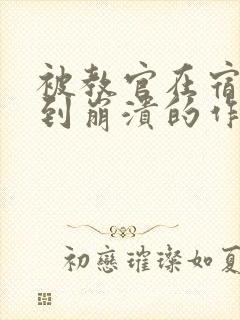 被教官在宿
到崩溃的作
初戀璀璨如夏